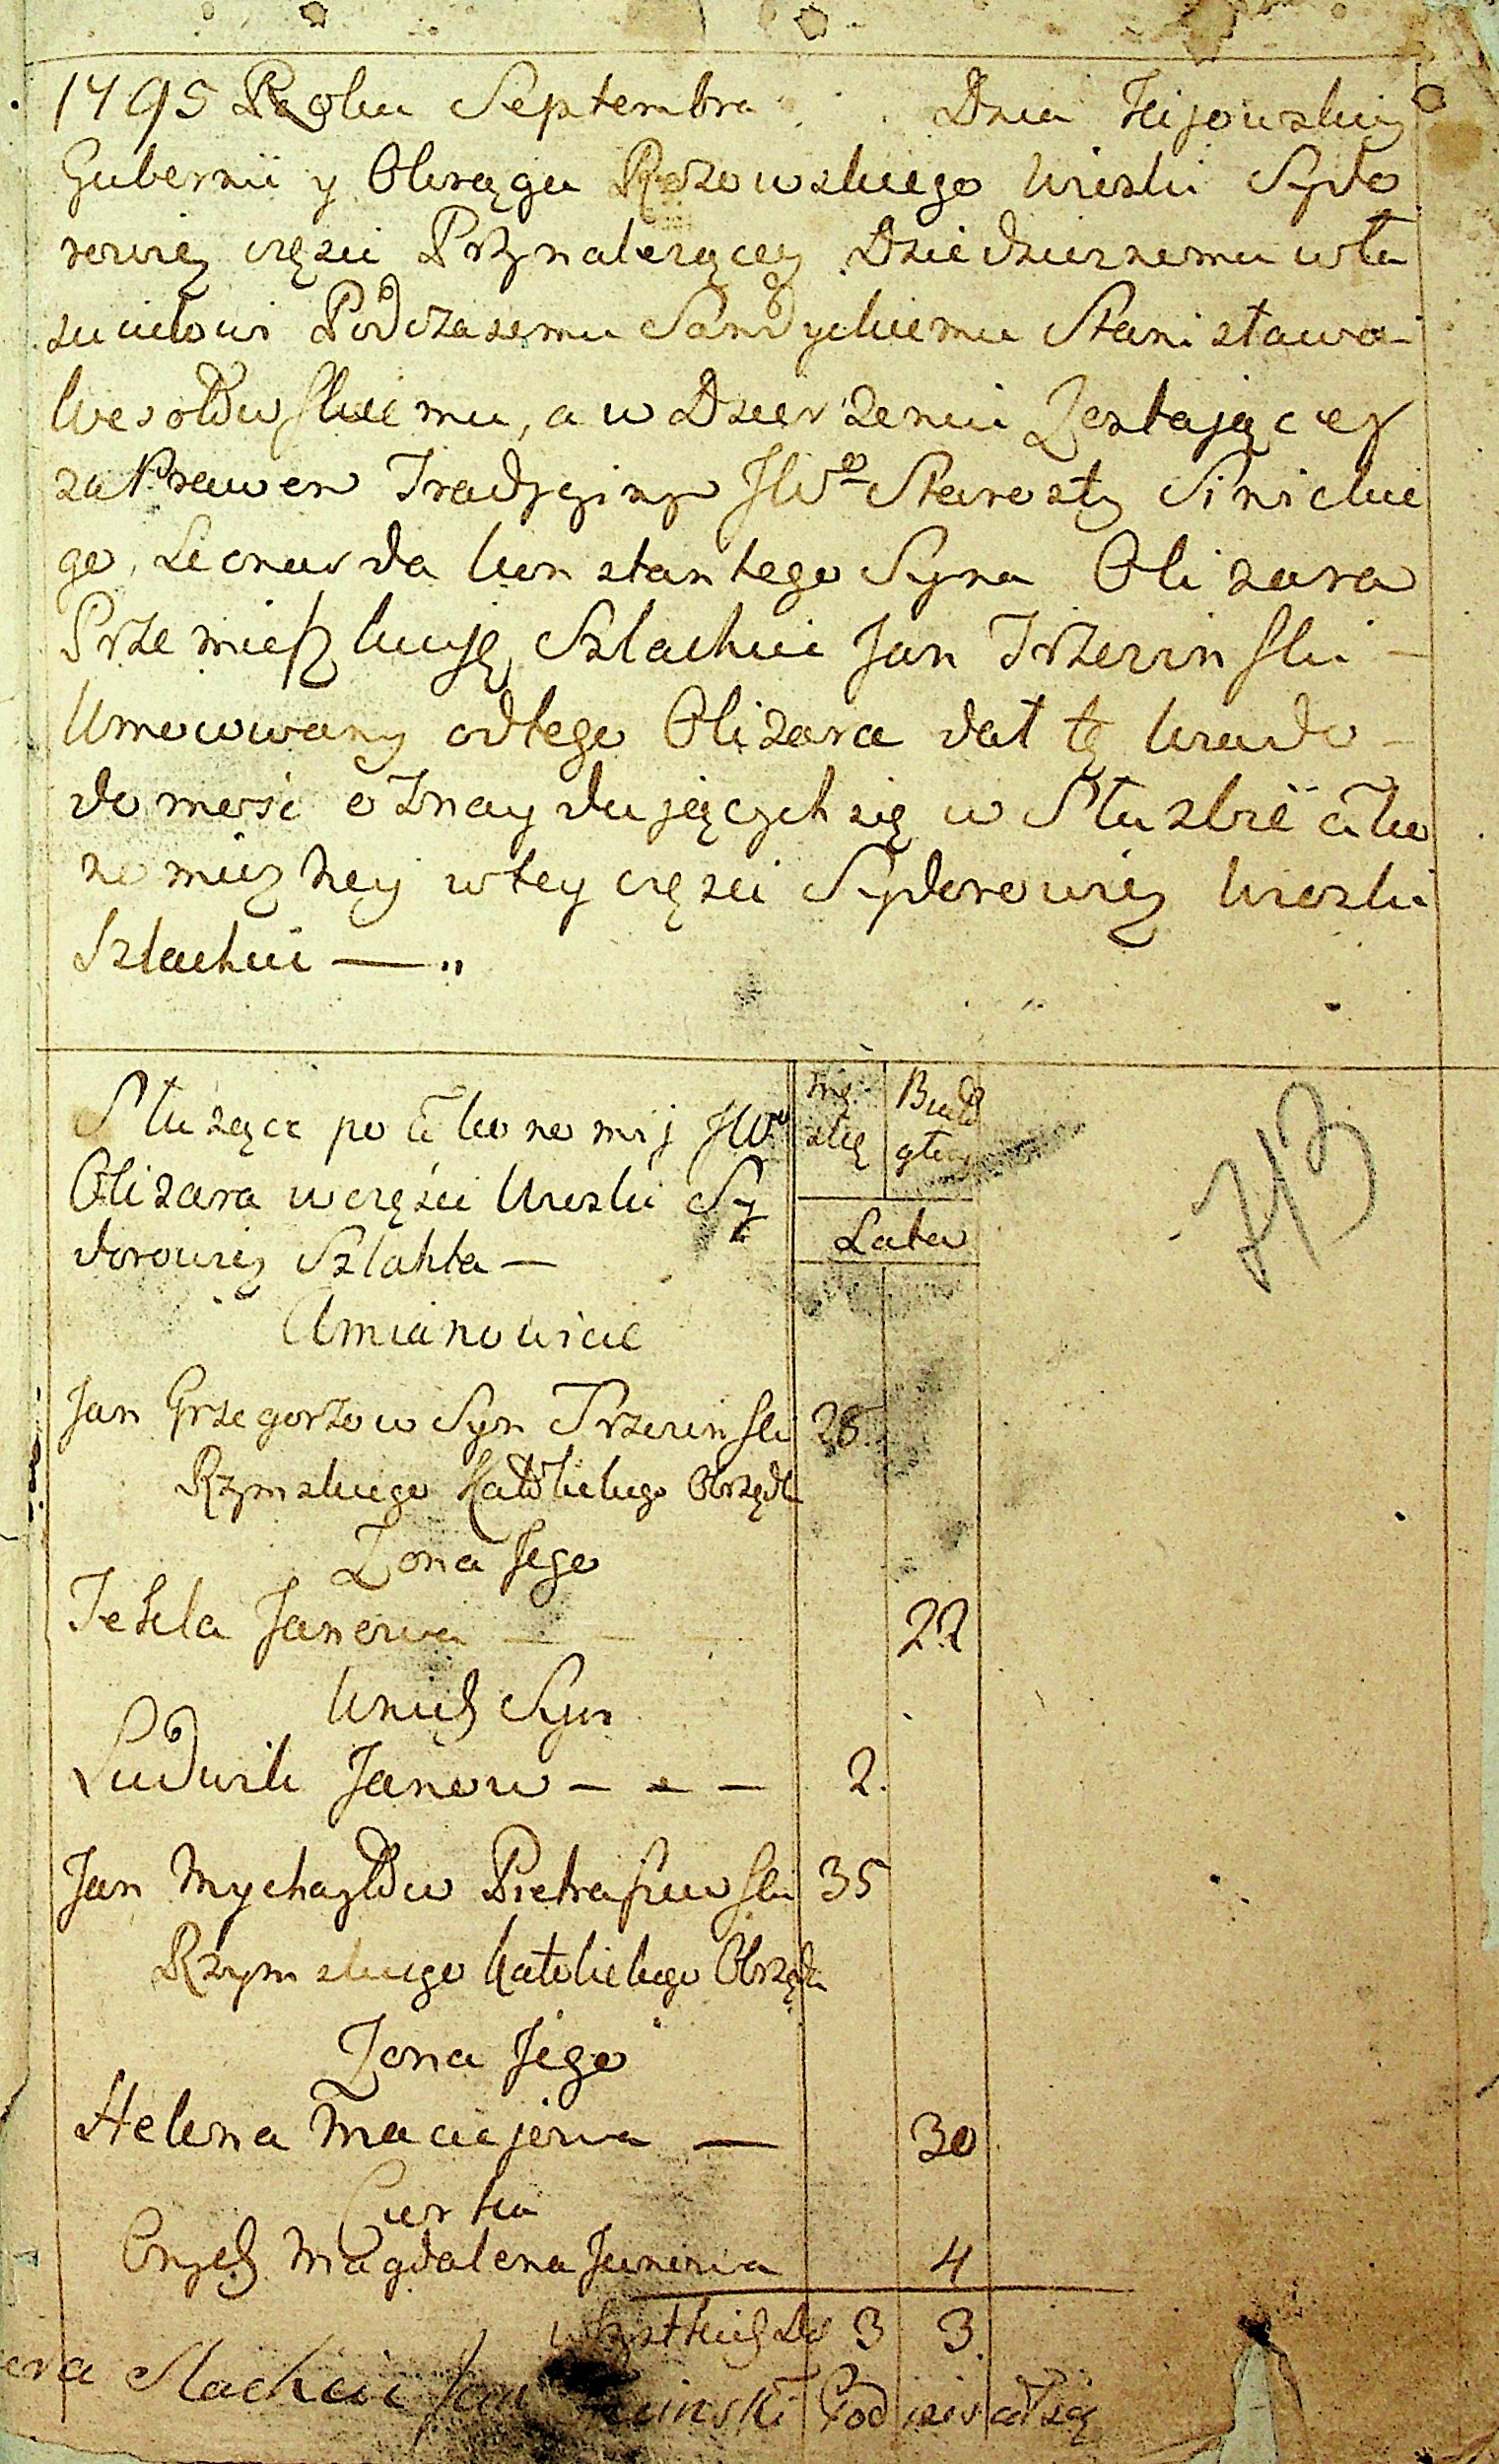 1795 Roku Septembra Dnia Kijowskiey
Gubernii y Okręgu Rożowskiego wioski Sydo
rowiey części Przynależącey Dziedzicznemu wła
scicielowi Podczasemu Sandyckiemu Stanisława
Wesołowskiemu, a w Dzierżeniu Zostającey
za Prawem Tradycyinym JWo Starosty Sinickie
go, Leonarda konstantego Syna Olizara
Przemieszkuję Szlachcic Jan Trzecinski —
Umocowany od tego Olizara dał tę wiado —
domość o Znaydujących się w Służbie ăko
nomiczney w tey części Sydorowiey wioski
Szlachcie — "
Służące po ăkonomij JWo
Olizara w części wioski Sy
dorowiey Szlahta —
Umianowicie
mę
zkię
Biało
głow
Lata
713
Jan Grzegorzow Syn Trzecinski 28
Rzymskiego Katolickiego Obrządku
Zona Jego
Tekla Janowa — — — 22
U nich Syn
Ludwik Janow — — — 2.
Jan Mychayłow Pietraszewski 35
Rzymskiego katolickiego Obrządku
Zona Jego
Helena Maciejowa — 30
Curka
Onych Magdalena Janowa 4
wszystkich Du 3 3
Slachcic Jan Podpisał się